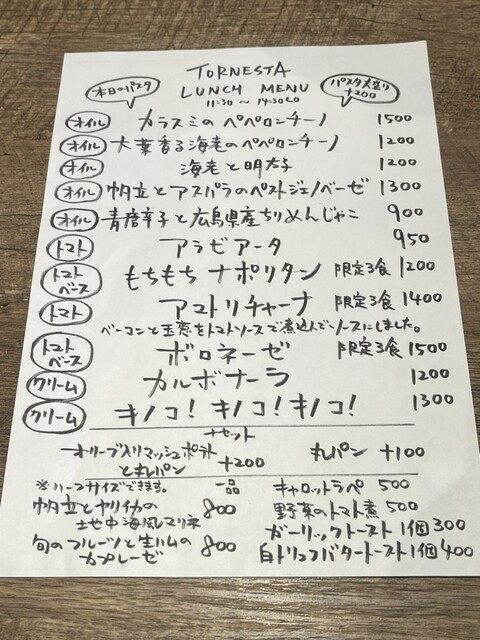 TORNESTA
本日のパスタ
LUNCH MENU
パスタ大盛り +200
11:30 ～ 14:30 LO
オイル カラスミのペペロンチーノ 1500
オイル 大葉香る海老のペペロンチーノ 1200
オイル 海老と明太子 1200
オイル 帆立とアスパラのペストジェノベーゼ 1300
オイル 青唐辛子と広島県産ちりめんじゃこ 900
トマト アラビアータ 950
トマトベース もちもちナポリタン 限定3食 1200
トマト アマトリチャーナ 限定3食 1400
ベーコンと玉葱をトマトソースで煮込んでソースにしました。
トマトベース ボロネーゼ 限定3食 1500
クリーム カルボナーラ 1200
クリーム キノコ! キノコ! キノコ! 1300
+セット
オリーブ入りマッシュポテトと丸パン +200 丸パン +100
※ハーフサイズできます。 一品 キャロットラペ 500
帆立とヤリイカの地中海風マリネ 800 野菜のトマト煮 500
ガーリックトースト 1個 300
旬のフルーツと生ハムのカプレーゼ 800 白トリュフバタートースト 1個 400